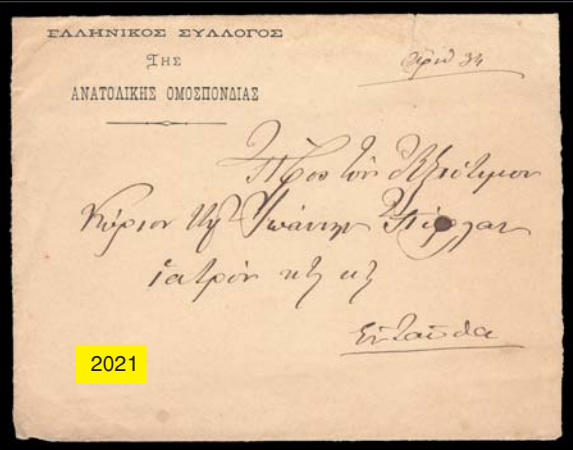 ΕΛΛΗΝΙΚΟΣ ΣΥΛΛΟΓΟΣ
ΤΗΣ
ΑΝΑΤΟΛΙΚΗΣ ΟΜΟΣΠΟΝΔΙΑΣ
Ἀριθ 34
Πρὸς τὸν Ἀξιότιμον
Κύριον Κον Ἰωάννην
ἰατρὸν κτλ κτλ
Ἐνταῦθα
2021